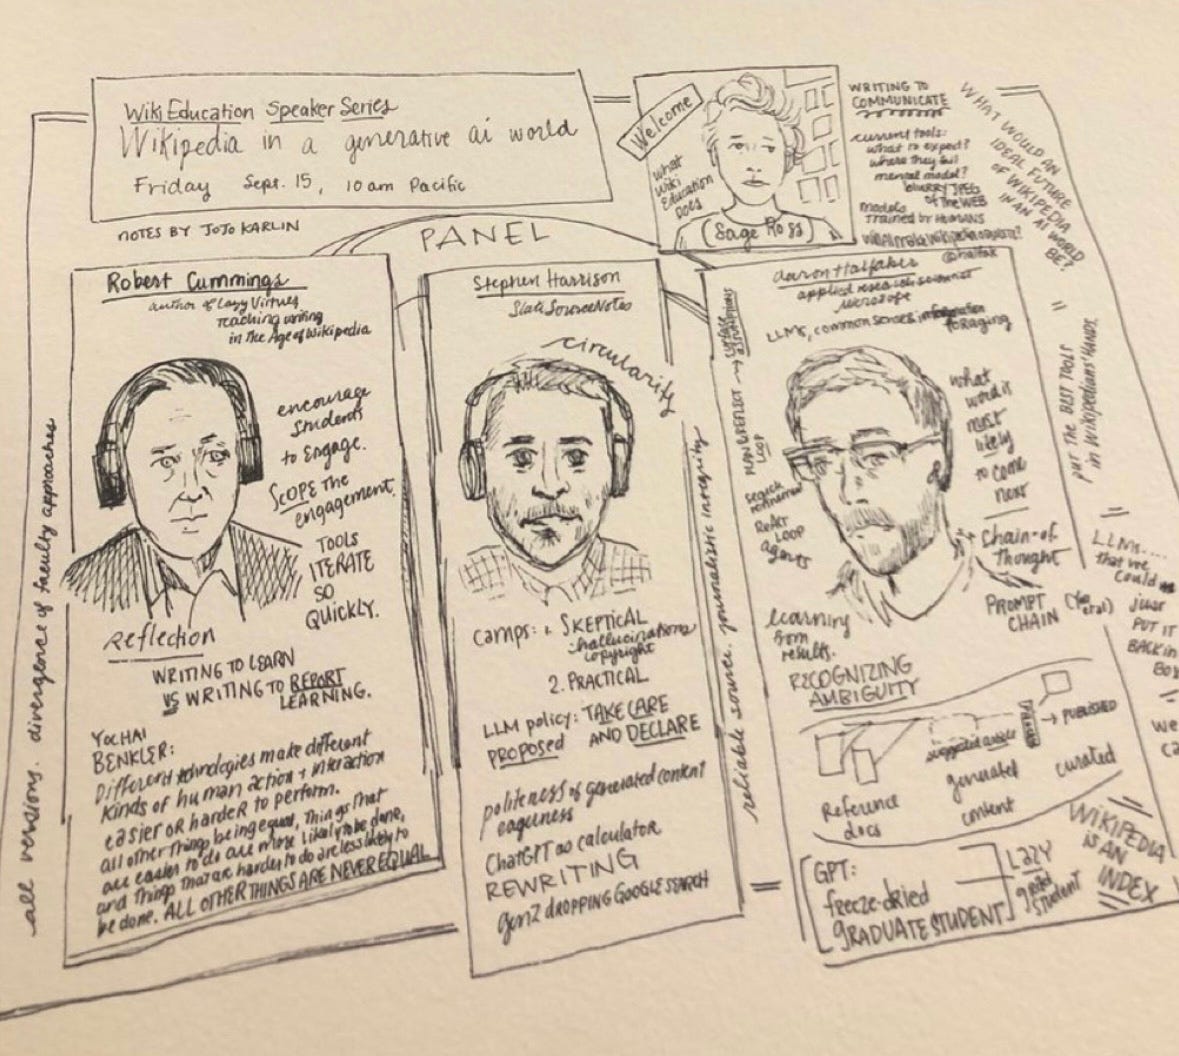 Wiki Education Speaker Series
Wikipedia in a generative ai world
Friday Sept. 15, 10am Pacific
NOTES BY JOJO KARLIN
PANEL
Welcome
what
Wiki
Education
Does
(Sage Ross)
WRITING TO
COMMUNICATE
current tools:
what to expect?
where they fail
mental model?
blurry JPEG
of the WEB
models
trained by HUMANS
WHAT WOULD AN
IDEAL FUTURE
OF WIKIPEDIA
IN AN AI WORLD
BE?
=
PUT THE BEST TOOLS
in WIKIPEDIANS' HANDS,
=
LLMs....
that we
could
just
PUT IT
BACK in
BOX
=
we
ca
all versions. divergence of faculty approaches
Robert Cummings
author of Lazy Virtues
Teaching writing
in the Age of Wikipedia
encourage
students
to Engage.
SCOPE the
engagement.
TOOLS
ITERATE
SO
QUICKLY.
reflection
WRITING TO LEARN
VS WRITING TO REPORT
LEARNING.
YOCHAI
BENKLER:
Different technologies make different
kinds of human action + interaction
easier or harder to perform.
all other things being equal, things that
are easier to do are more likely to be done,
and things that are harder to do are less likely to
be done. ALL OTHER THINGS ARE NEVER EQUAL
Stephen Harrison
Slate Source Notes
circularity
camps: 1. SKEPTICAL
hallucinations
copyright
2. PRACTICAL
LLM policy: TAKE CARE
PROPOSED AND DECLARE
politeness of generated content
eagerness
ChatGPT as calculator
REWRITING
gen Z dropping GOOGLE SEARCH
reliable source. journalistic integrity
aaron Halfaker
@halfak
applied research scientist
microsoft
LLMs, common senses, information
foraging
MAN & REFLECT
LOOP
search
refinement
ReAct
LOOP
agents
what
word is
most
likely
to come
next
chain-of
Thought
PROMPT
CHAIN
learning
from
results.
RECOGNIZING
AMBIGUITY
Reference
docs
suggested article
generated
content
→ PUBLISHED
curated
GPT:
freeze-dried
GRADUATE STUDENT
LAZY
grad
student
WIKIPEDIA
is AN
INDEX